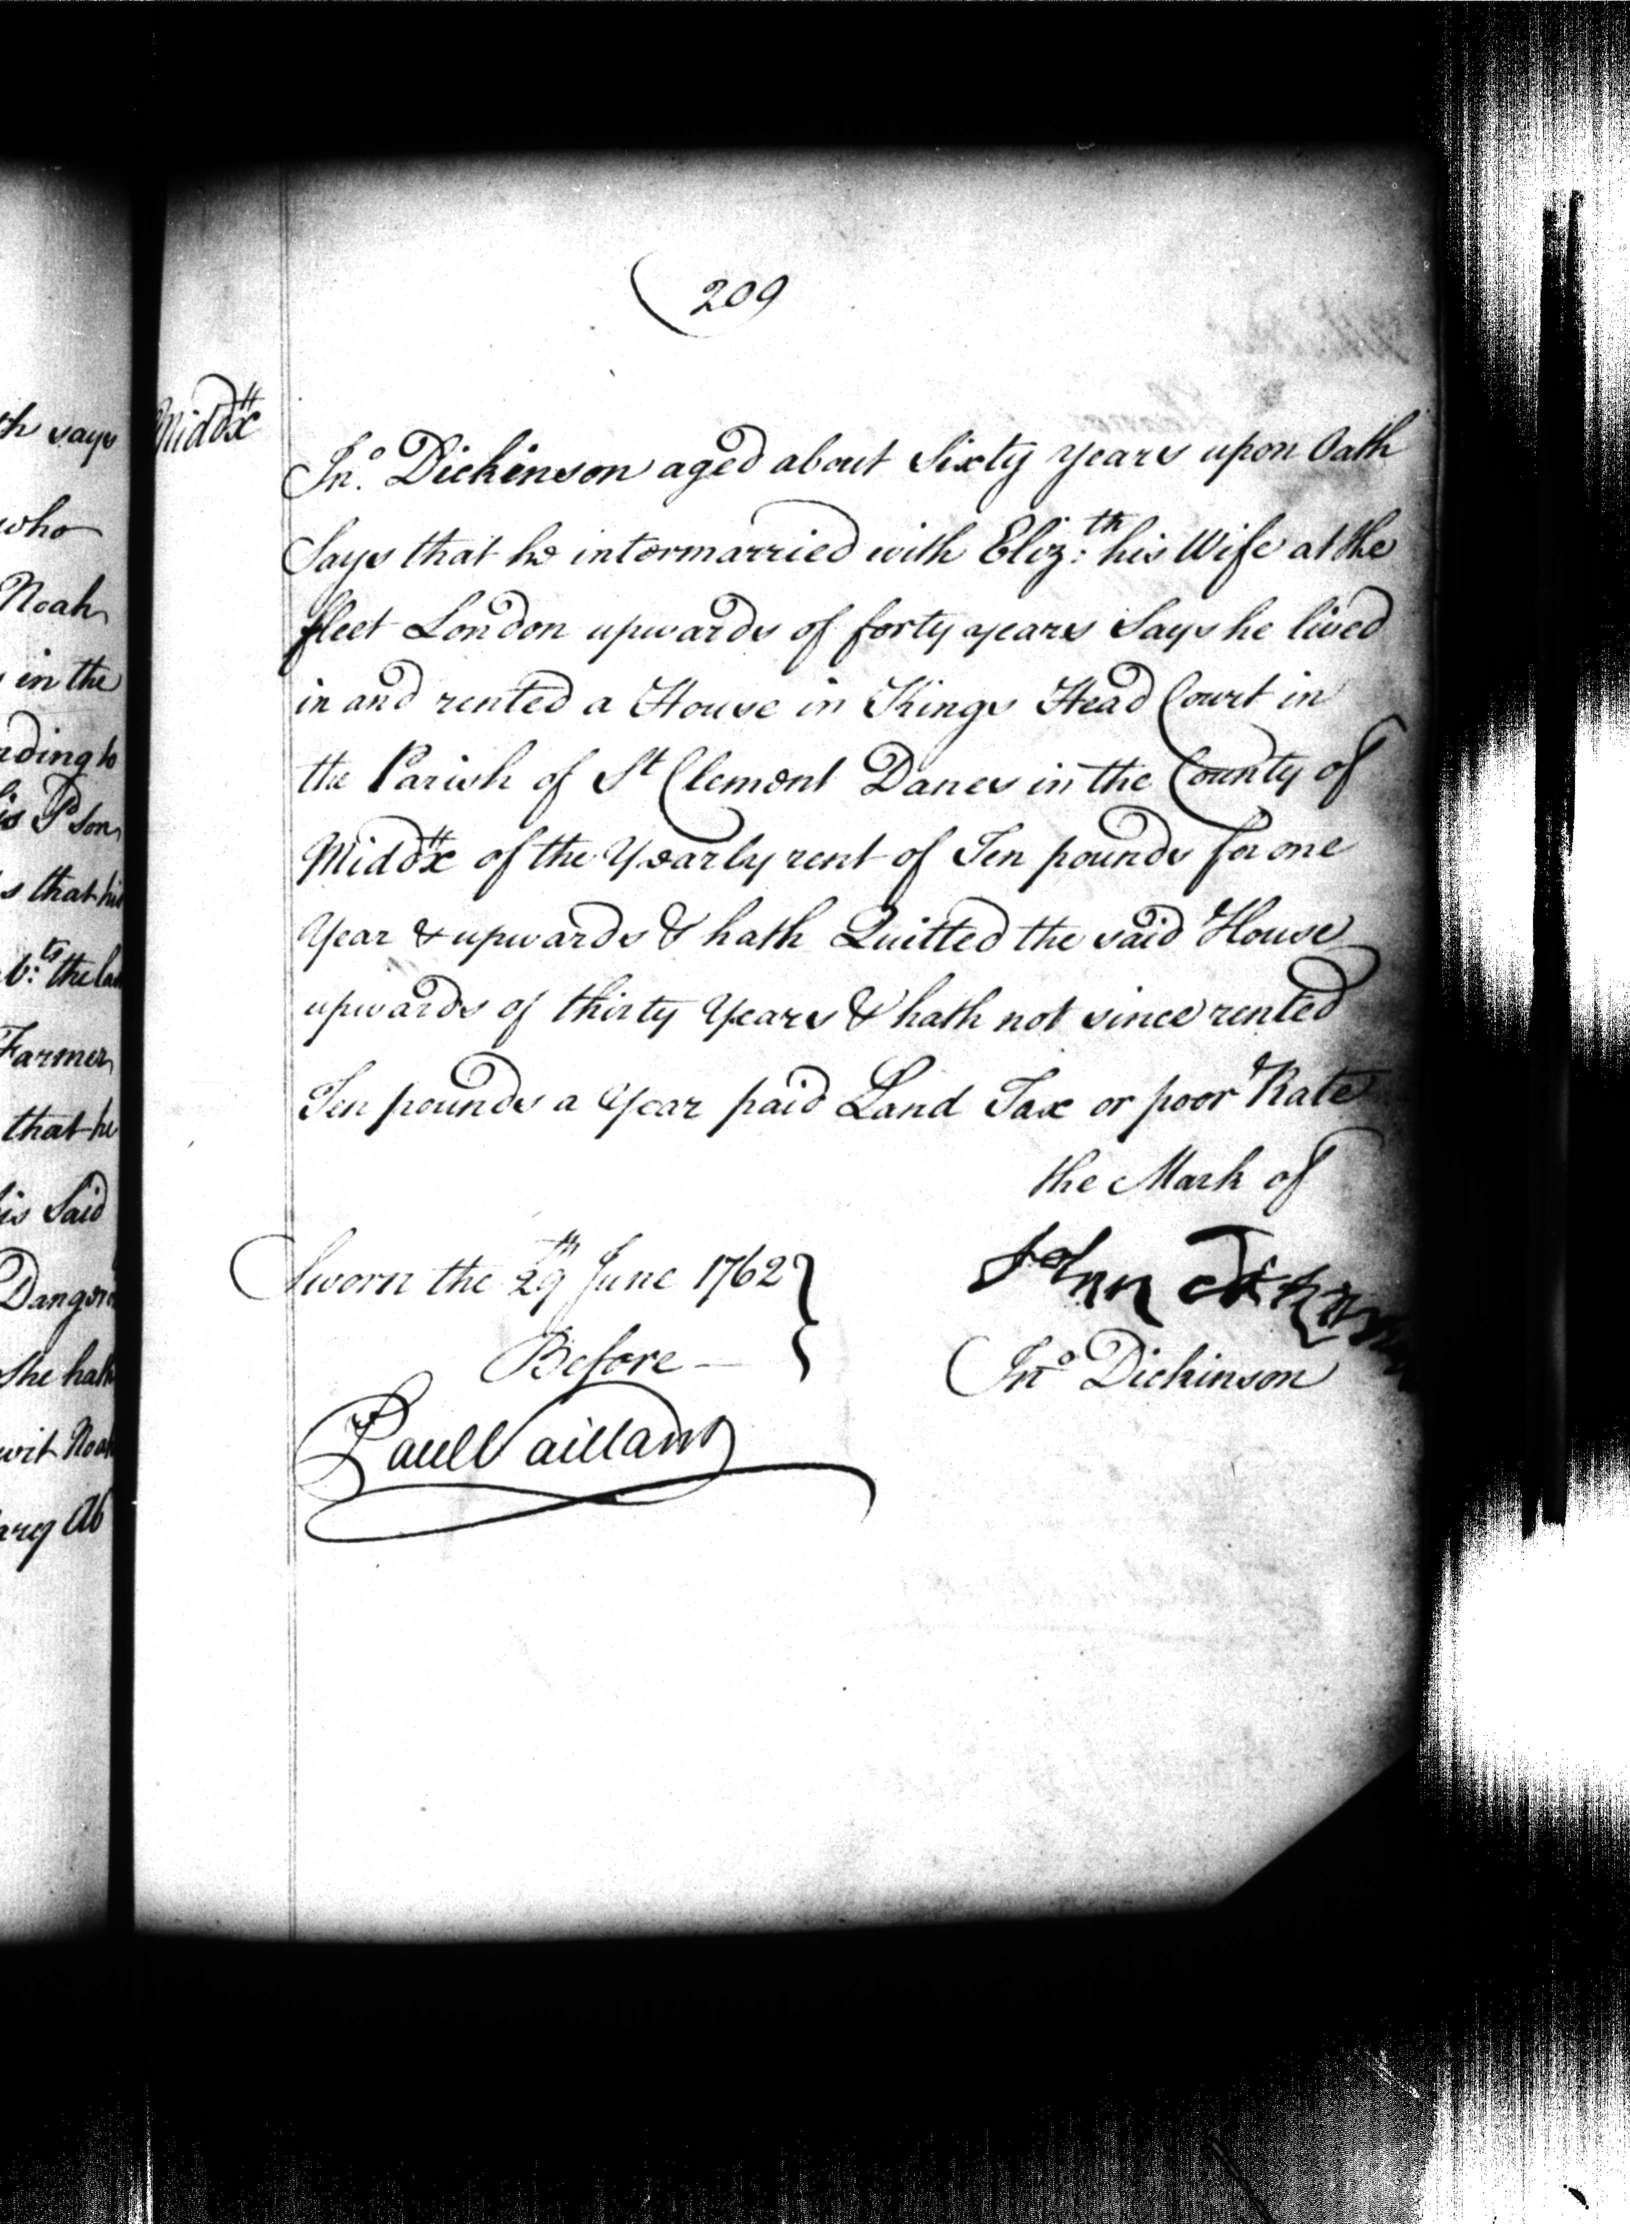 209
Middx
Jno. Dickinson aged about Sixty years upon Oath
Says that he intermarried with Eliz:th his Wife at the
fleet London upwards of forty years Says he lived
in and rented a House in Kings Head Court in
the Parish of St Clement Danes in the County of
Middx of the Yearly rent of Ten pounds for one
Year & upwards & hath Quitted the said House
upwards of thirty Years & hath not since rented
Ten pounds a Year paid Land Tax or poor Rate
the Mark of
Sworn the 29th June 1762
John
Before
Jno Dickinson
Paul Vaillant
th says
who
Noah
in the
ding to
is Pson
s that his
b:ts the
Farmer
that he
is Said
She hath
wit Noah